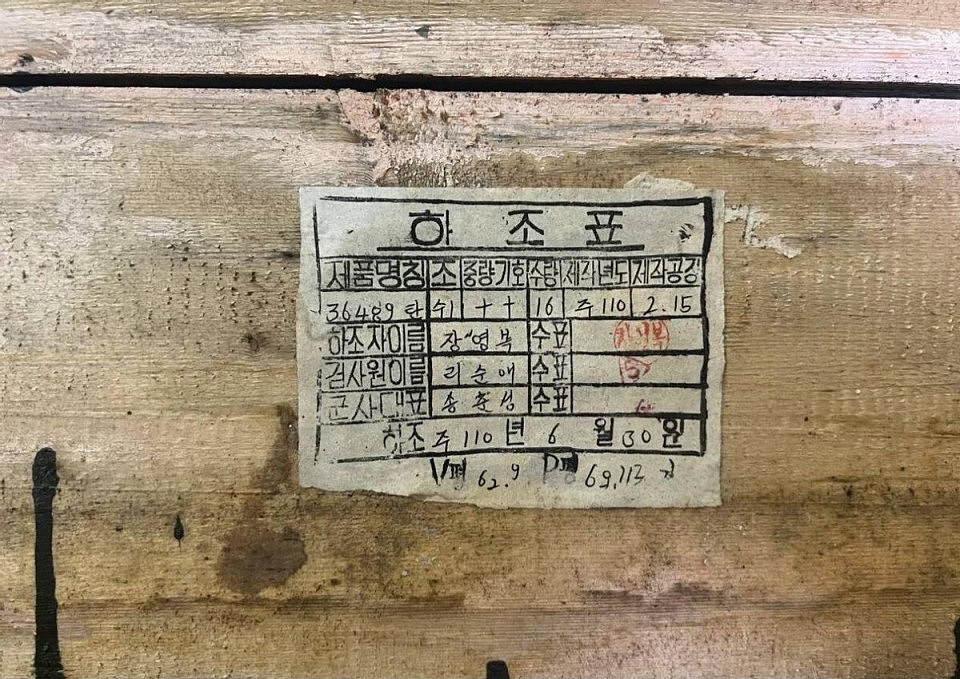 하조표
제품명칭 조 중량기호 수량 제작년도 제작공장
36489탄 쉬 ++ 16 주110 2.15
하조자이름 장영복 수표
검사원이름 리순애 수표
군사대표 송춘성 수표
하조 주110년 6월 30일
V평 62.9 P평 69.113